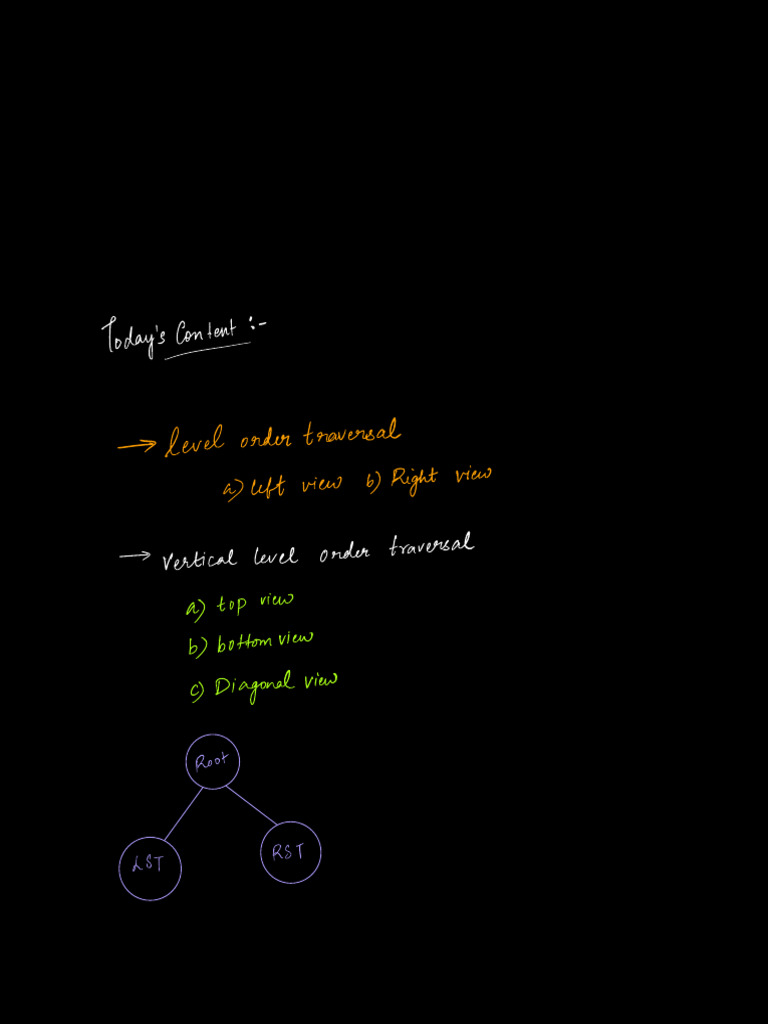 Today's Content :-
→ Level order traversal
a) left view b) Right view
→ Vertical level order traversal
a) top view
b) bottom view
c) Diagonal view
Root
LST
RST